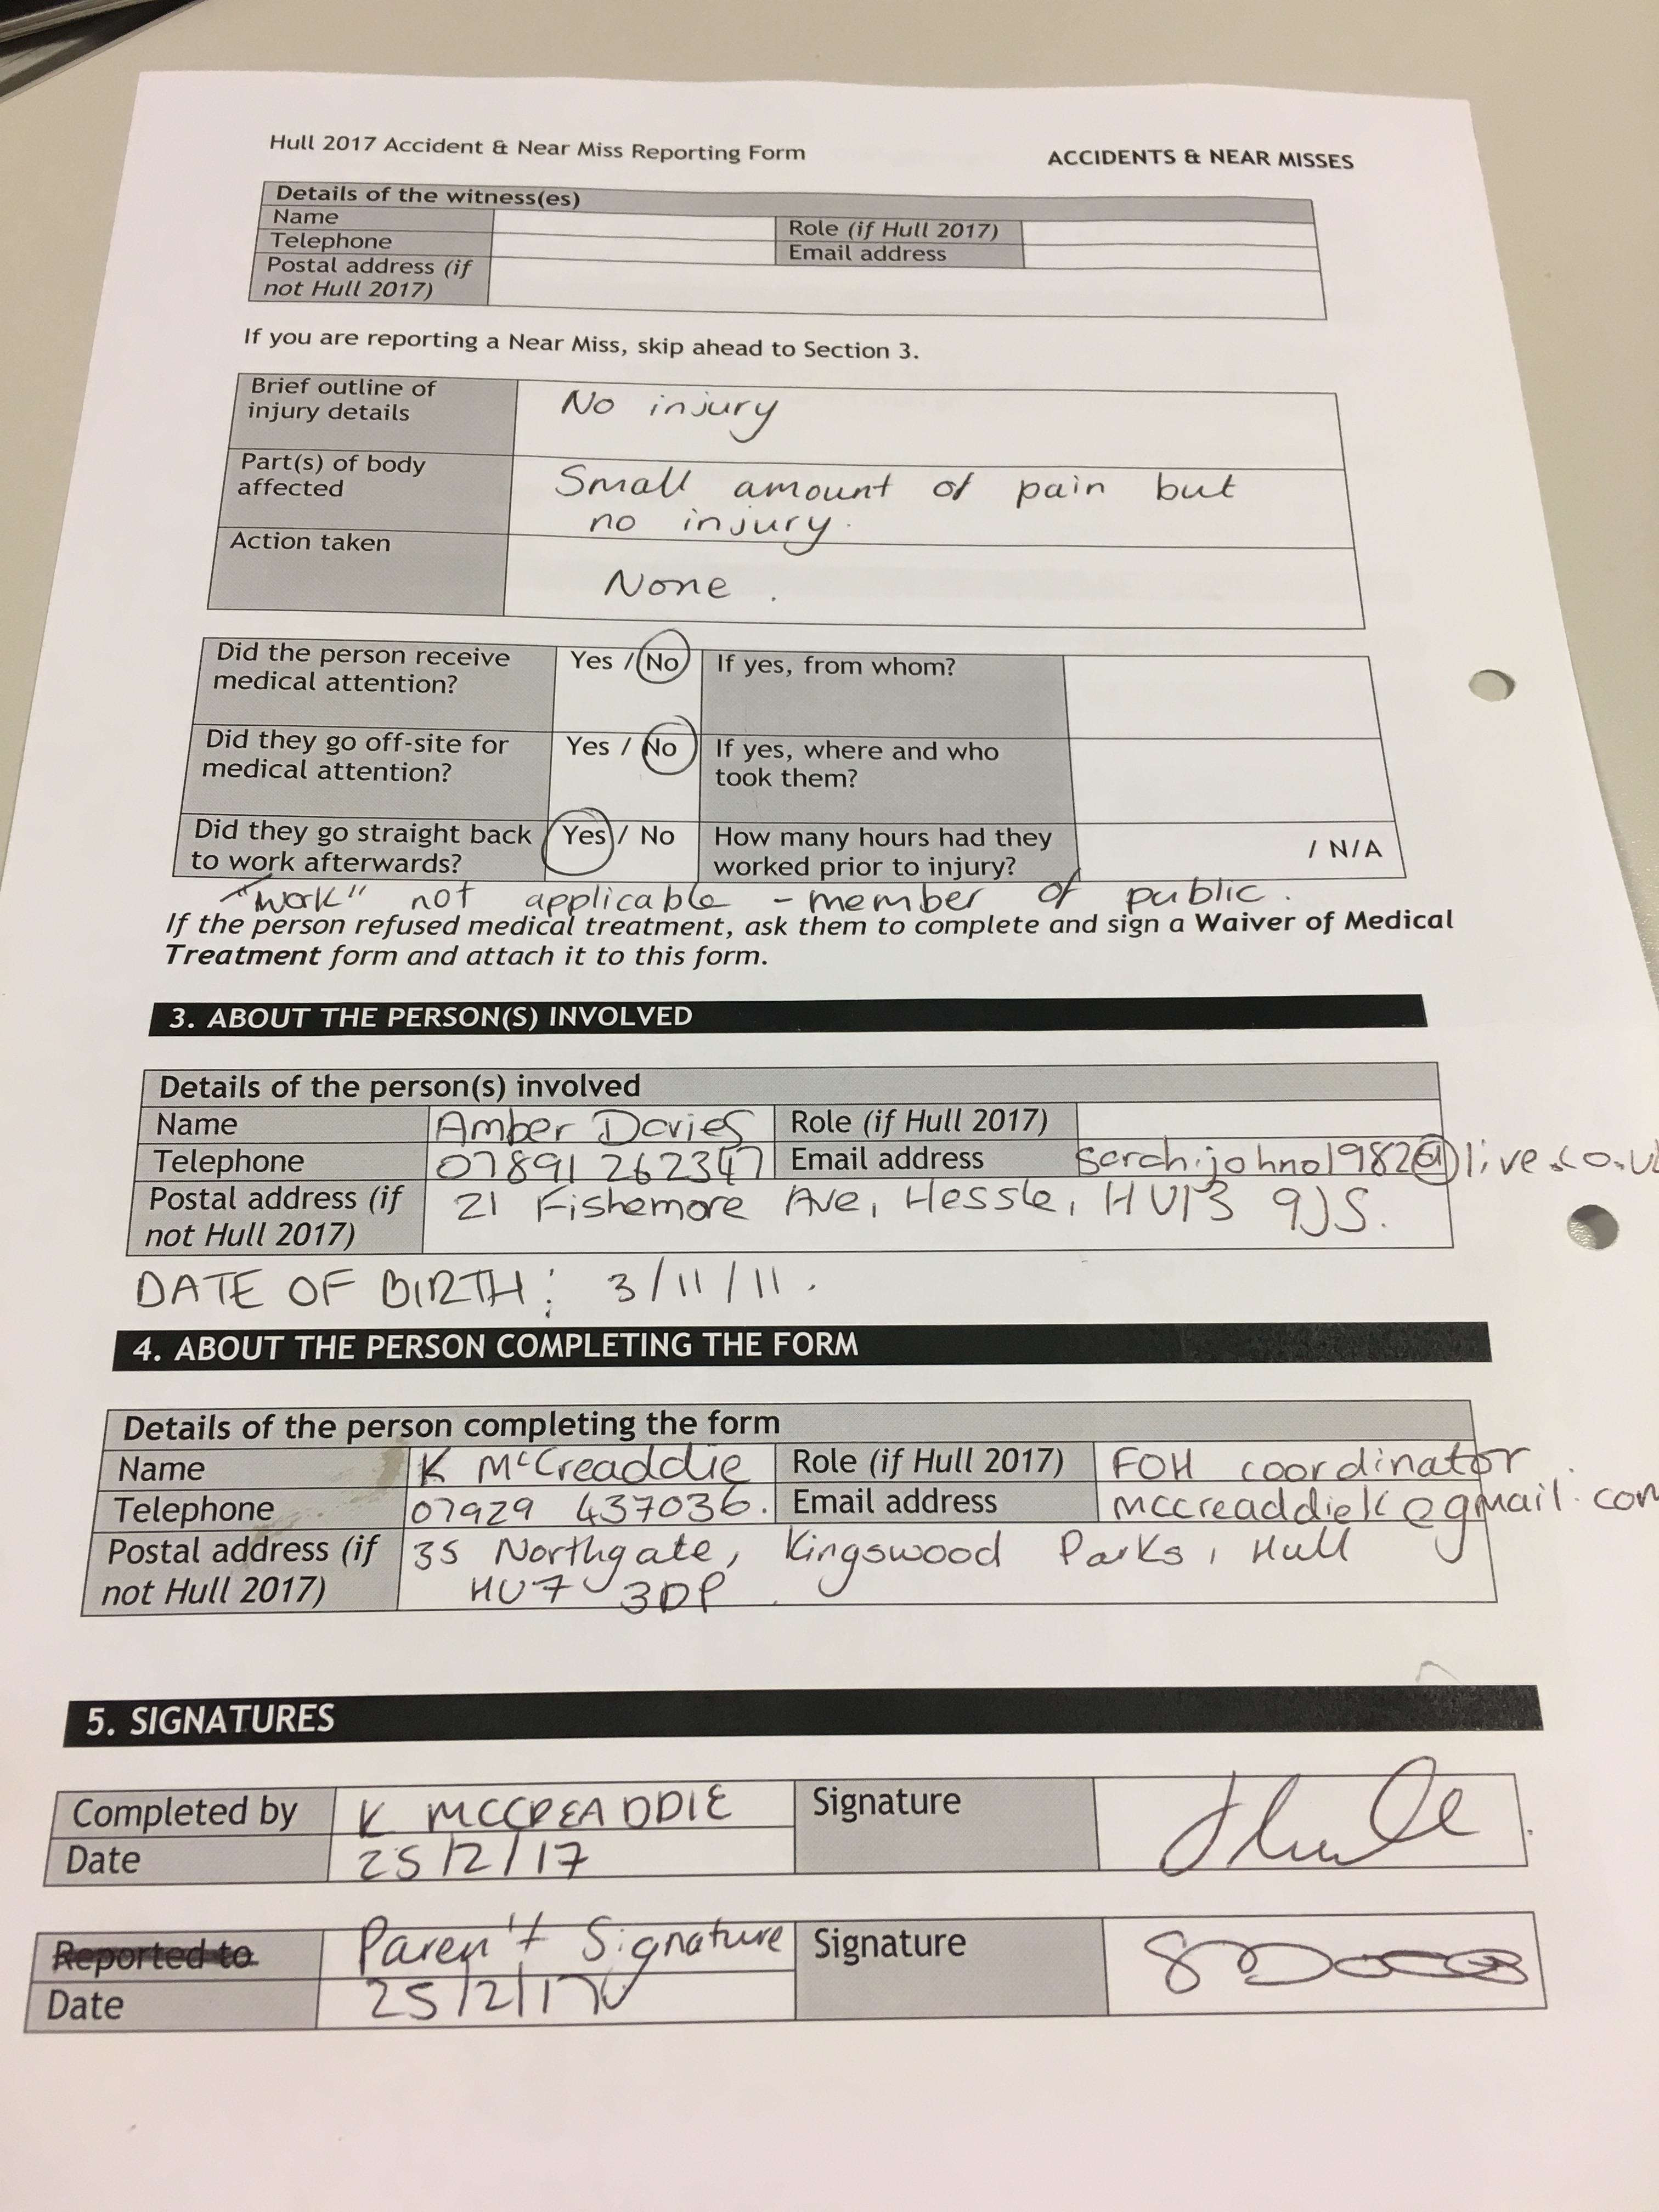 Hull 2017 Accident & Near Miss Reporting Form ACCIDENTS & NEAR MISSES
Details of the witness(es)
Name Role (if Hull 2017)
Telephone Email address
Postal address (if
not Hull 2017)
If you are reporting a Near Miss, skip ahead to Section 3.
Brief outline of
injury details No injury
Part(s) of body
affected Small amount of pain but
no injury.
Action taken
None.
Did the person receive
medical attention? Yes / No If yes, from whom?
Did they go off-site for
medical attention? Yes / No If yes, where and who
took them?
Did they go straight back
to work afterwards? Yes / No How many hours had they
worked prior to injury? / N/A
"work" not applicable - member of public.
If the person refused medical treatment, ask them to complete and sign a Waiver of Medical
Treatment form and attach it to this form.
3. ABOUT THE PERSON(S) INVOLVED
Details of the person(s) involved
Name Amber Davies Role (if Hull 2017)
Telephone 07891 262347 Email address sarah.johno1982@live.co.u
Postal address (if
not Hull 2017) 21 Fishemore Ave, Hessle, HU13 9JS.
DATE OF BIRTH: 3/11/11.
4. ABOUT THE PERSON COMPLETING THE FORM
Details of the person completing the form
Name K McCreaddie Role (if Hull 2017) FOH coordinator
Telephone 07929 437036. Email address mccreaddiek@gmail.com
Postal address (if
not Hull 2017) 35 Northgate, Kingswood Parks, Hull
HU7 3DP
5. SIGNATURES
Completed by K MCCREADDIE Signature
Date 25/2/17
Reported to Parent Signature Signature
Date 25/2/17